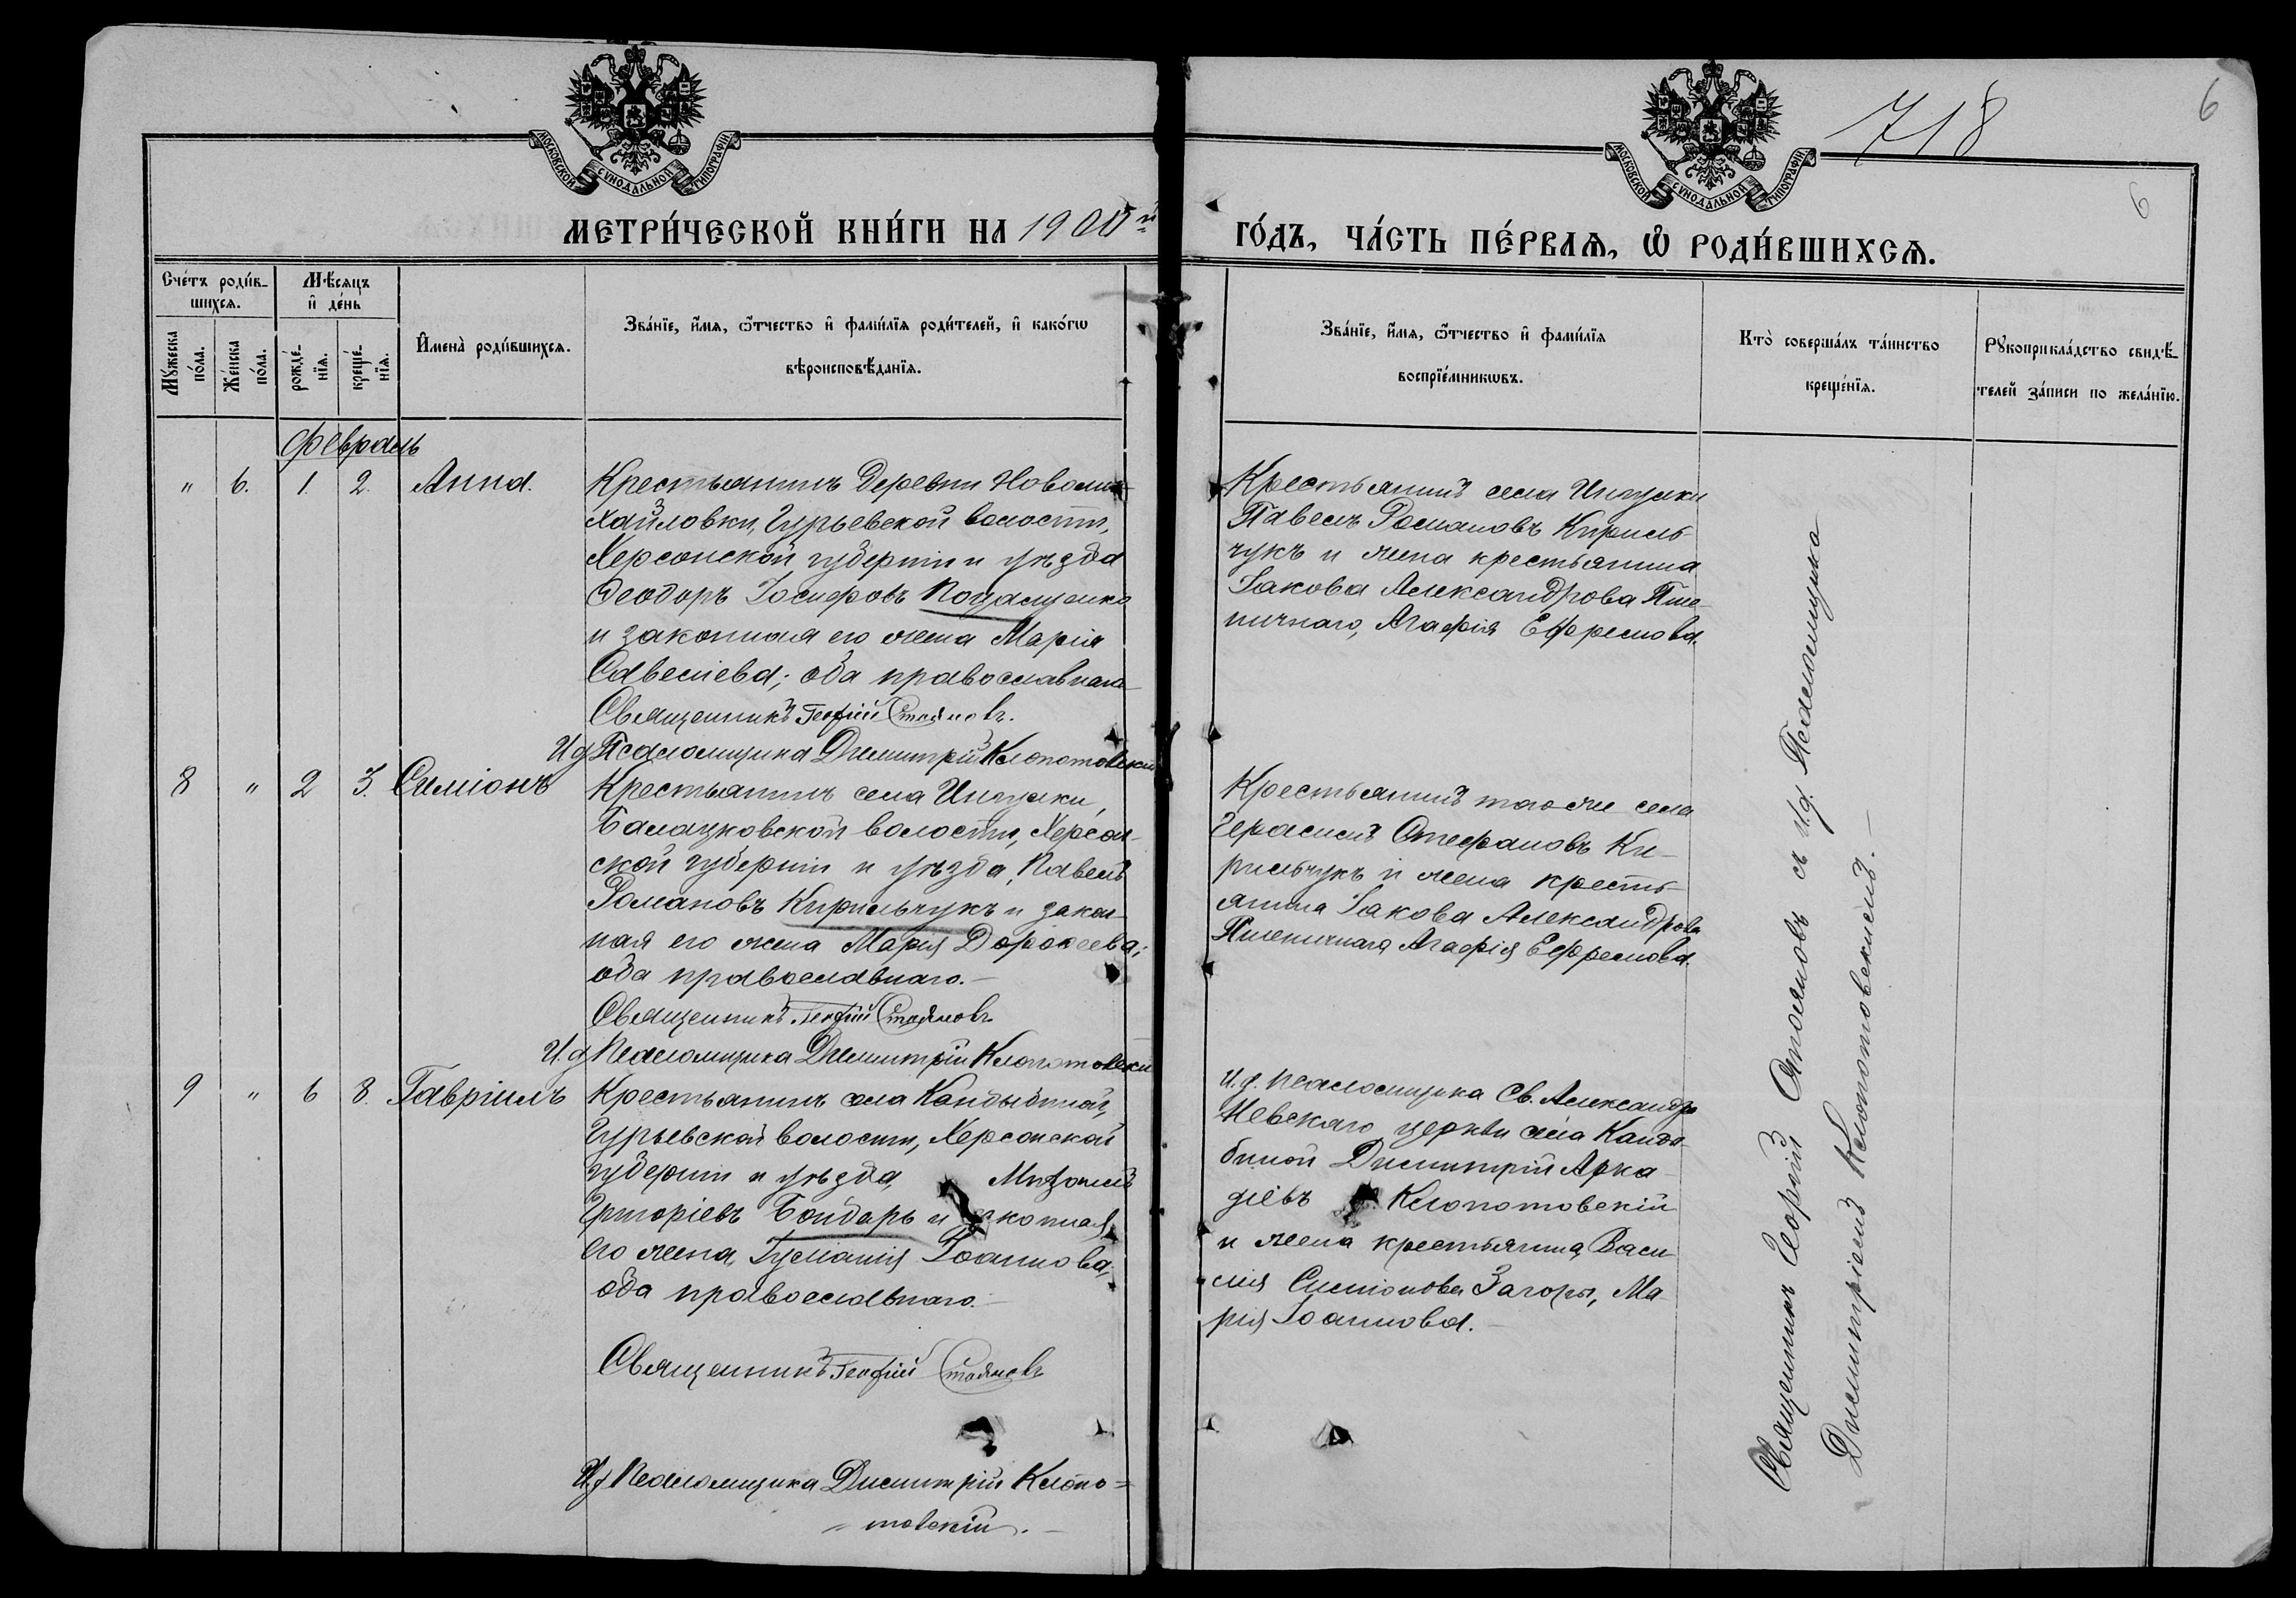 718
6
6
МОСКОВСКОЙ СѴНОДАЛЬНОЙ ТИПОГРАФІИ
МОСКОВСКОЙ СѴНОДАЛЬНОЙ ТИПОГРАФІИ
МЕТРИ́ЧЕСКОЙ КНИ́ГИ НА 1900й
ГО́ДЪ, ЧА́СТЬ ПЕ́РВАѦ, Ѿ РОДИ́ВШИХСѦ.
Сче́тъ роди́в-
шихсѧ.
Мѣ́сѧцъ
и҆ де́нь
Мꙋ́жеска
по́ла.
Же́нска
по́ла.
рожде́-
нїѧ.
креще́-
нїѧ.
И҆мена̀ роди́вшихсѧ.
Зва́нїе, и҆́мѧ, ѻ҆́тчество и҆ фами́лїѧ роди́телей, и҆ како́гѡ
вѣроисповѣ́данїѧ.
Зва́нїе, и҆́мѧ, ѻ҆́тчество и҆ фами́лїѧ
воспрїе́мникѡвъ.
Кто̀ соверша́лъ та́инство
креще́нїѧ.
Рꙋкоприкла́дство свидѣ́-
телей за́писи по жела́нїю.
Февраль
" 6. 1. 2. Анна.
Крестьянинъ деревни Новоми-
хайловки, Гурьевской волости,
Херсонской губерніи и уѣзда
Ѳеодоръ Іосифовъ Поташенко
и законная его жена Марія
Савеліева; оба православнаго
Священникъ Георгій Стояновъ.
И д Псаломщика Димитрій Клопотовскій
Крестьянинъ села Ингулки
Павелъ Романовъ Кириль-
чукъ и жена крестьянина
Іакова Александрова Пше-
ничнаго, Агафія Ефремова.
8 " 2 3. Симіонъ
Крестьянинъ села Ингулки,
Балацковской волости, Херсон-
ской губерніи и уѣзда, Павелъ
Романовъ Кирильчукъ и закон-
ная его жена Марія Дороѳеева;
оба православнаго. —
Священникъ Георгій Стояновъ
И. д Псаломщика Димитрій Клопотовскій
Крестьянинъ того же села
Герасимъ Стефановъ Ки-
рильчукъ и жена кресть-
янина Іакова Александрова
Пшеничнаго Агафія Ефремова.
9 " 6 8. Гавріилъ
Крестьянинъ села Кандыбиной,
Гурьевской волости, Херсонской
губерніи и уѣзда,
Григоріевъ Бондарь и законная
его жена, Іуліанія Іоаннова,
оба православнаго. —
Священникъ Георгій Стояновъ
И. д Псаломщика Димитрій Клопо=
= товскій. —
И. д. псаломщика Св. Александро
Невскаго церкви села Канды-
биной Димитрій Арка-
діевъ Клопотовскій
и жена крестьянина Васи
лія Симіонова Загоры, Ма-
рія Іоаннова. —
Священникъ Георгій Стояновъ съ И.д. Псаломщика
Димитріемъ Клопотовскимъ. —